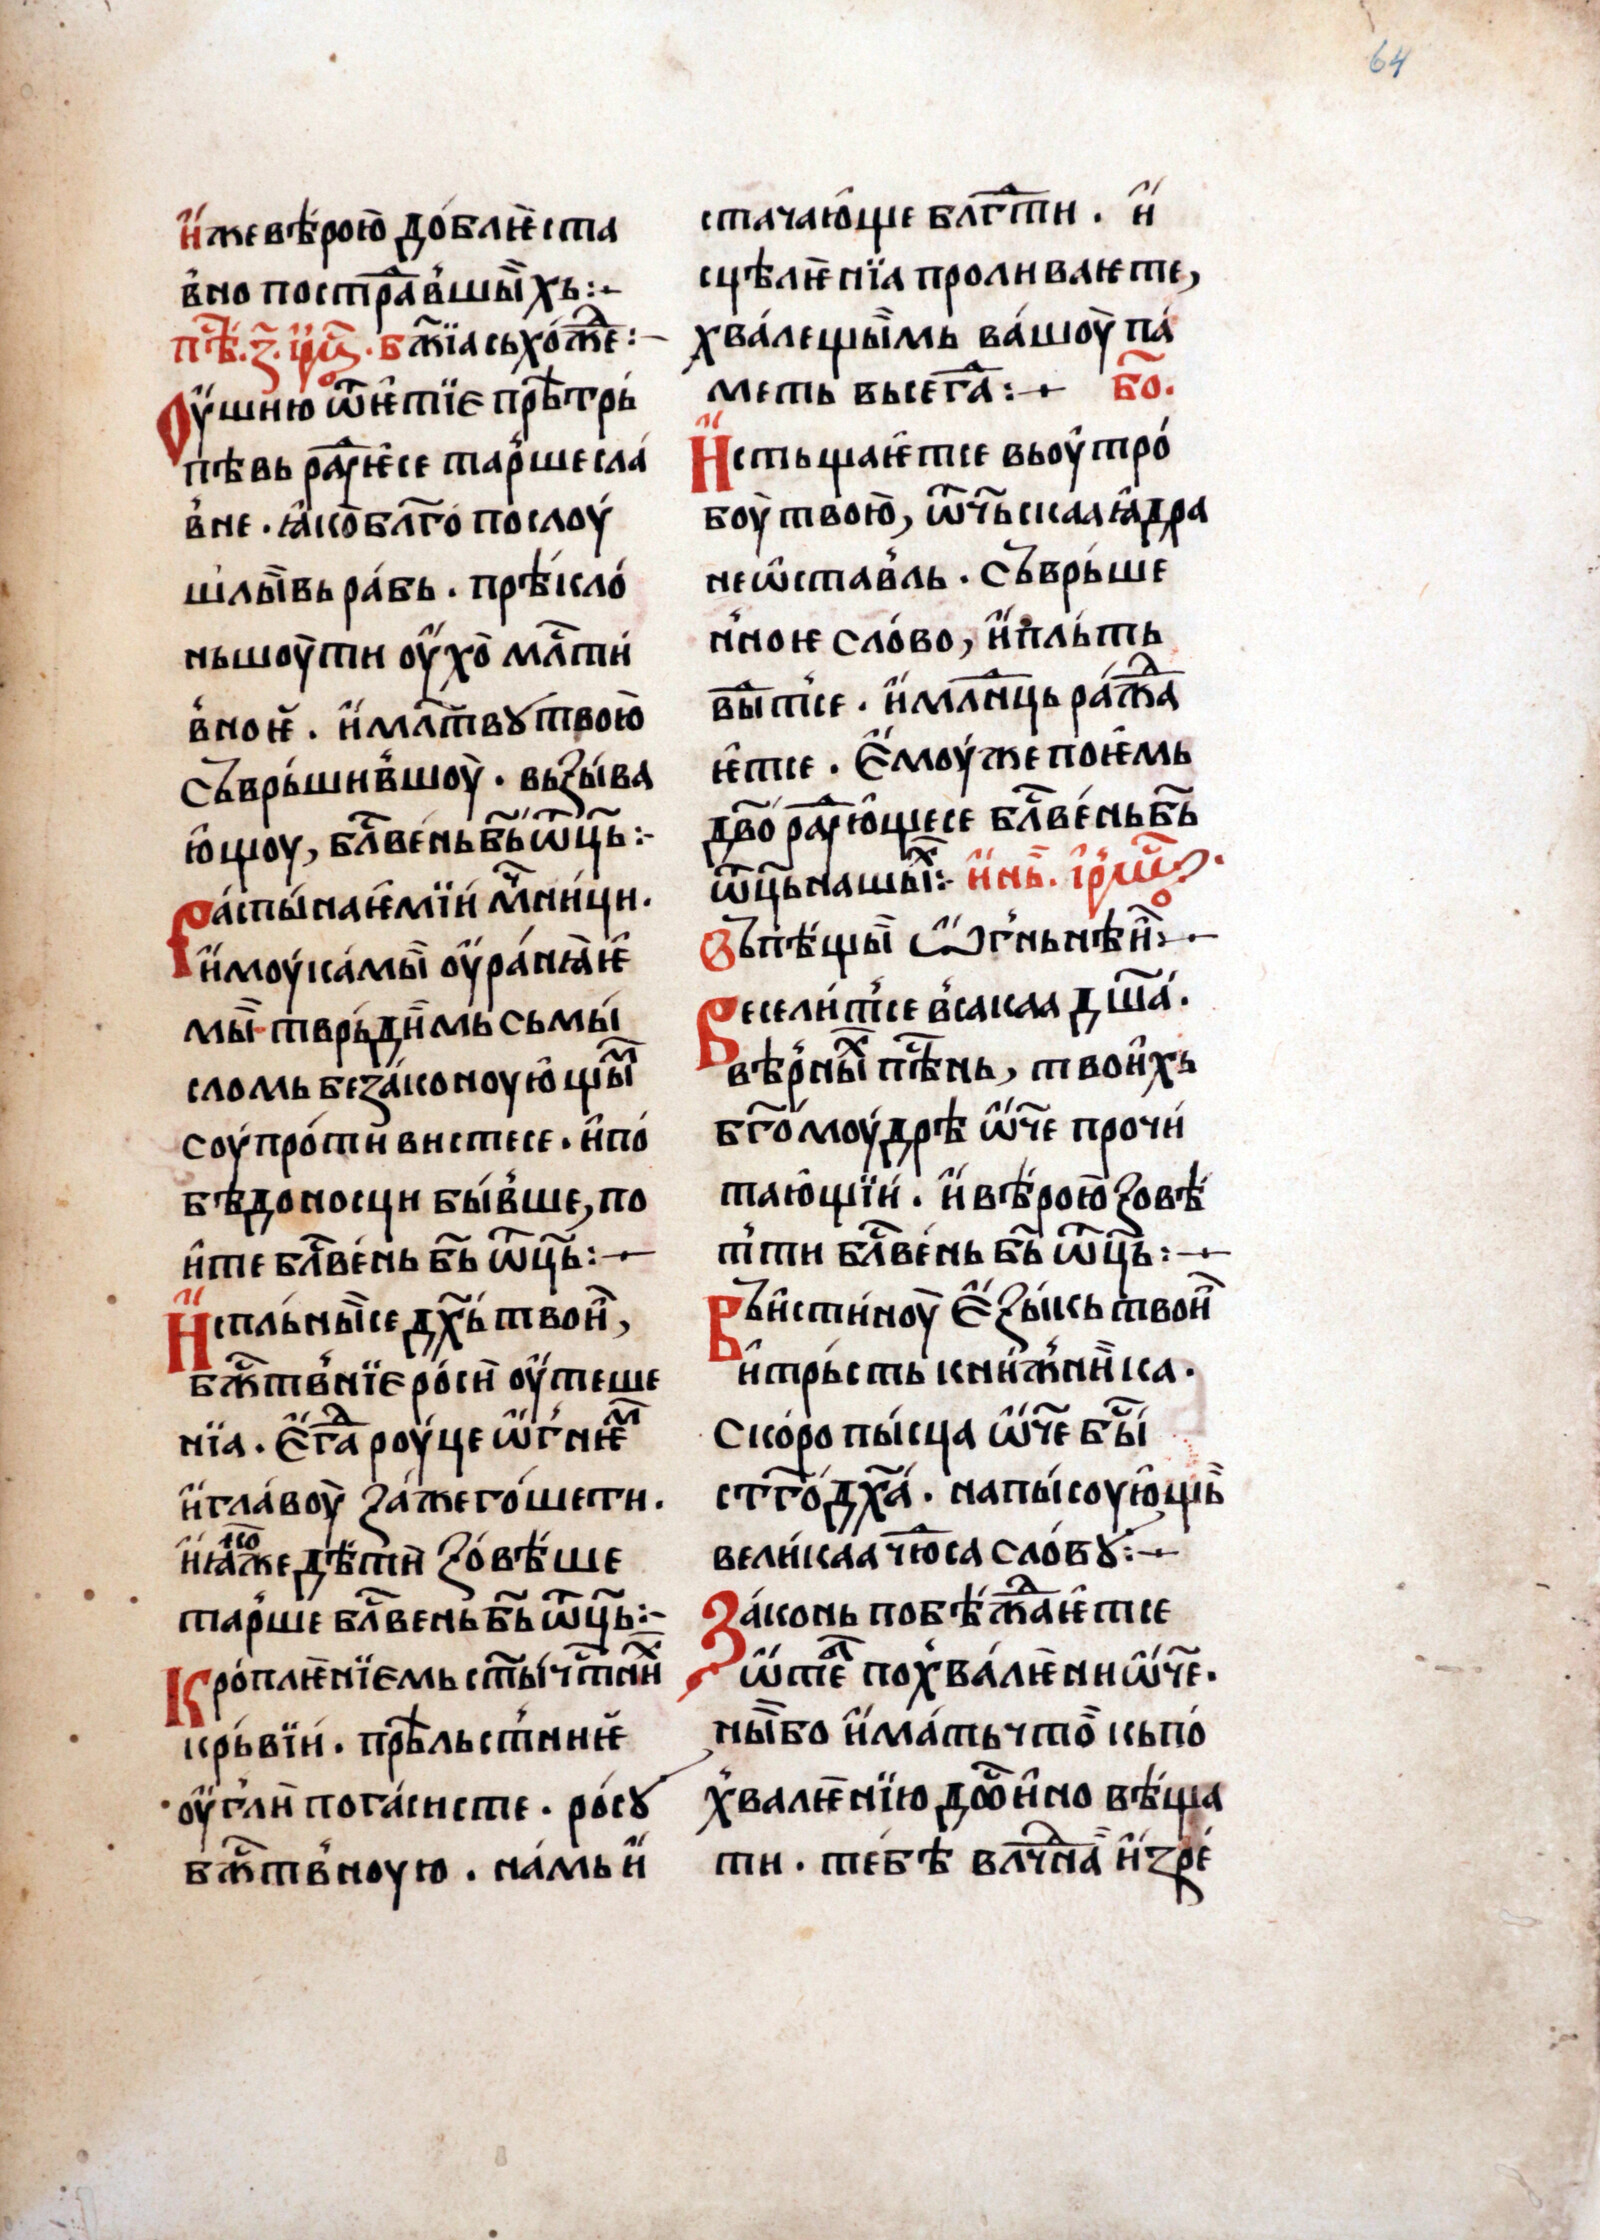 64
и҆́же вѣ́рою̀ до́блѥ̀ ста
в҆но постра́д҆ авшы̀хь :~
пѣ́. з҃. і҆рм҃. бж҃їа сьхоже :~
Оу҆шию ѿѥ҆тїе прѣ́трь
пѣвь раꙁꙋѥ҆се тар҆ше сла́
в҆не . ꙗ҆ко̀ бл҃го́ послоу́
шлы̀вь ра́бь . прѣ́кло́
ньшоу̀ти оу҆́хо̀ мл҃ти́
в҆ноѥ̀ . и҆́ мл҃твꙋ твою̀
съврь́ши в҆шоу̀ . вьꙁы́ва
ю҆щоу, бл҃ве́нь бь҃ ѿц҃ь :~
Ра́спы́наѥ҆мїи́ мч҃ни́ци .
и҆́ моу́камы̀ оу҆́ра́нꙗ̀ѥ҆
мы̀ . тврь́ди̏мь сьмы́
сломь беꙁа́коноую҆щы̏м
соупро́ти̏вистесе . и҆ по́
бѣ́доносци бы́в҆ше, по
и҆те бл҃ве́нь бь҃ ѿц҃ь :~
И҆́спль́ны̀се дх҃ь́ твои̏,
бж҃тв҆нїе ро́си̏ оу҆́теше
нїа . Е҆́гда роу́це ѿ́г҆нѥм
и҆́ гла́воу̀ ꙁа́жего́шети .
и҆ꙗ҆коже дѣ́ти̏ ꙁо́вѣ́ше
тар҆ше бл҃вень бь҃ ѿц҃ь :~
Кро́плѥ̀нїемь ст҃ы́ чт҃ни̏х
крь́вїи́ . прѣ́льст҆ниѥ̀
оу҆́г҆ли̏ пога́систе . ро́сꙋ
бж҃тв҆ноую . на́мь и҆́
стачаю҆ще бл҃гⷣти . и҆́
сцѣлѥ̀нїа проливаѥте,
хва́лещы̀мь ва́шоу̀ па́
меть вьсегⷣа :~ бо҃.
И҆́стьщаѥ҆тсе вьоу҆тро́
боу̀ твою̀, ѿч҃ьскаа ꙗ҆дра
неѡ҆став҆ль . Съврь́ше
н҆ноѥ сло́во, и҆́ пль́ть
бы́ваѥ҆тсе . и҆́ мл҃днць ра́жⷣа
ѥ҆тсе . Е҆́моу́же поѥ҆мь
дв҃о́ раⷣꙋю҆щесе бл҃ве́нь бь҃
ѿц҃ь нашы̀х :~ и҆́нь̀. і҆́рмо҃.
Въпѣ́щы̀ ѿ́г҆ньнѣи̏ :~
Весели́т҆се в҆сакаа дш҃а́ .
вѣ́р҆ны̀х пѣ́нь, твои҆хь
бг҃о́моу́дрѣ ѿ҆́ч҃е прочи́
таю҆щїи́ . и҆́ вѣ́рою̀ ꙁовѣ́
т҆ти бл҃ве́нь бь҃ ѿц҃ь :~
Въи҆сти́ноу̀ Е҆́ꙁы́кь твои̏
и҆ трь́сть кни́ж҆ни̏ка .
Ско́ропы́сца ѿ҆́ч҃е бы́
ст҃го́ дх҃а́ . напы́соую҆щь̀
вели́каа чюⷣса сло́вꙋ :~
За́конь побѣ́жⷣаѥ҆тсе
ѿ҆́ тебе пох҆ва́лѥ̀ни ѿ҆́ч҃е .
ны̀бо и҆́ма́ть что̀ кьпо́
х҆валѥ̀нїю до́стои҆но вѣ́ща
ти . те́бѣ влⷣчна̀ и҆́зре́